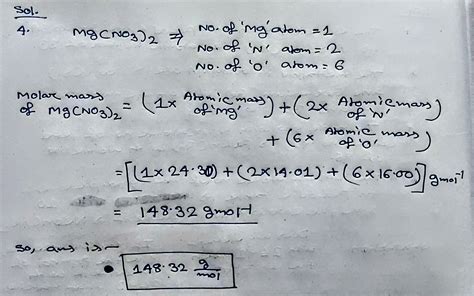 Sol.
4. Mg(NO3)2 ⇒ No. of 'Mg' atom = 1
No. of 'N' atom = 2
No. of 'O' atom = 6
Molar mass of Mg(NO3)2 = (1× Atomic mass of 'Mg') + (2× Atomic mass of 'N')
+ (6× Atomic mass of 'O')
= [(1×24.30) + (2×14.01) + (6×16.00)] gmol⁻¹
= 148.32 gmol⁻¹
So, ans is –
• 148.32 g/mol